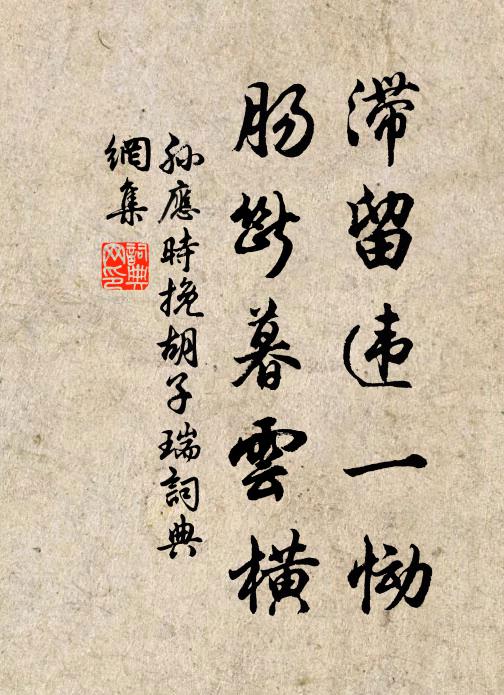 滯留违一恸
肠断暮雲橫
孙應時挽胡子瑞詞典
網集
詞典网印